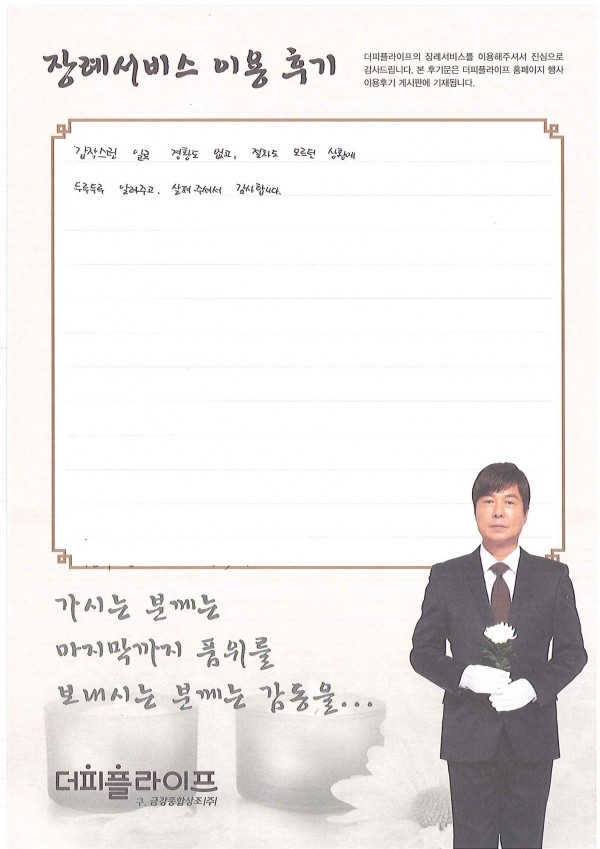 장례서비스 이용 후기
더피플라이프의 장례서비스를 이용해주셔서 진심으로
감사드립니다. 본 후기문은 더피플라이프 홈페이지 행사
이용후기 게시판에 기재됩니다.
갑작스런 일로 경황도 없고, 절차도 모르던 상황에
두루두루 알려주고, 살펴 주셔서 감사합니다.
가시는 분께는
마지막까지 품위를
보내시는 분께는 감동을...
더피플라이프
구. 금강종합상조(주)